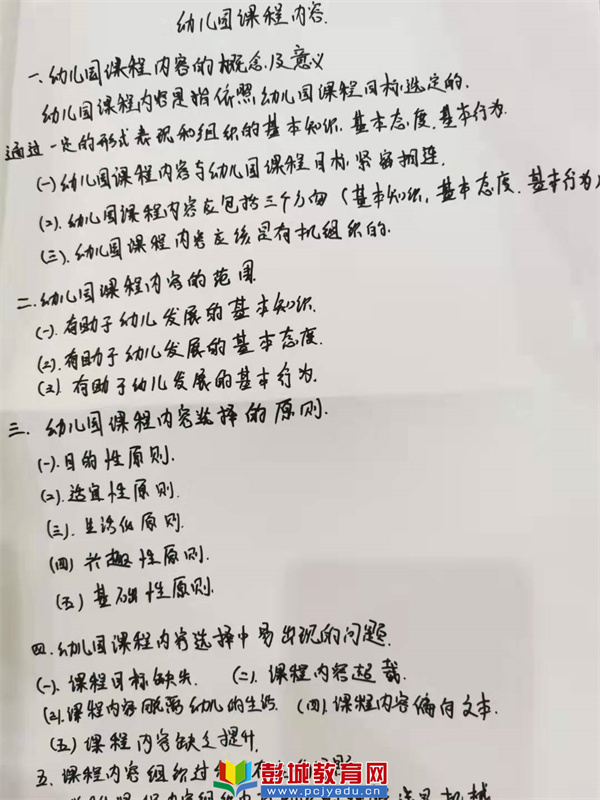 幼儿园课程内容.
一、幼儿园课程内容的概念及意义
幼儿园课程内容是指依照幼儿园课程目标选定的.
通过一定的形式表现和组织的基本知识.基本态度.基本行为.
(一)幼儿园课程内容与幼儿园课程目标紧密相连.
(二).幼儿园课程内容应包括三个方面(基本知识,基本态度.基本行为)
(三).幼儿园课程内容应该是有机组织的.
二.幼儿园课程内容的范围.
(一).有助于幼儿发展的基本知识.
(二).有助于幼儿发展的基本态度.
(三).有助于幼儿发展的基本行为.
三.幼儿园课程内容选择的原则.
(一).目的性原则.
(二).适宜性原则.
(三).生活化原则.
(四)兴趣性原则.
(五)基础性原则.
四.幼儿园课程内容选择中易出现的问题.
(一).课程目标缺失. (二).课程内容超载.
(三).课程内容脱离幼儿的生活. (四).课程内容偏向文本.
(五)课程内容缺乏提升.
五.课程内容组织过
彭城教育网
www.pcjyedu.cn